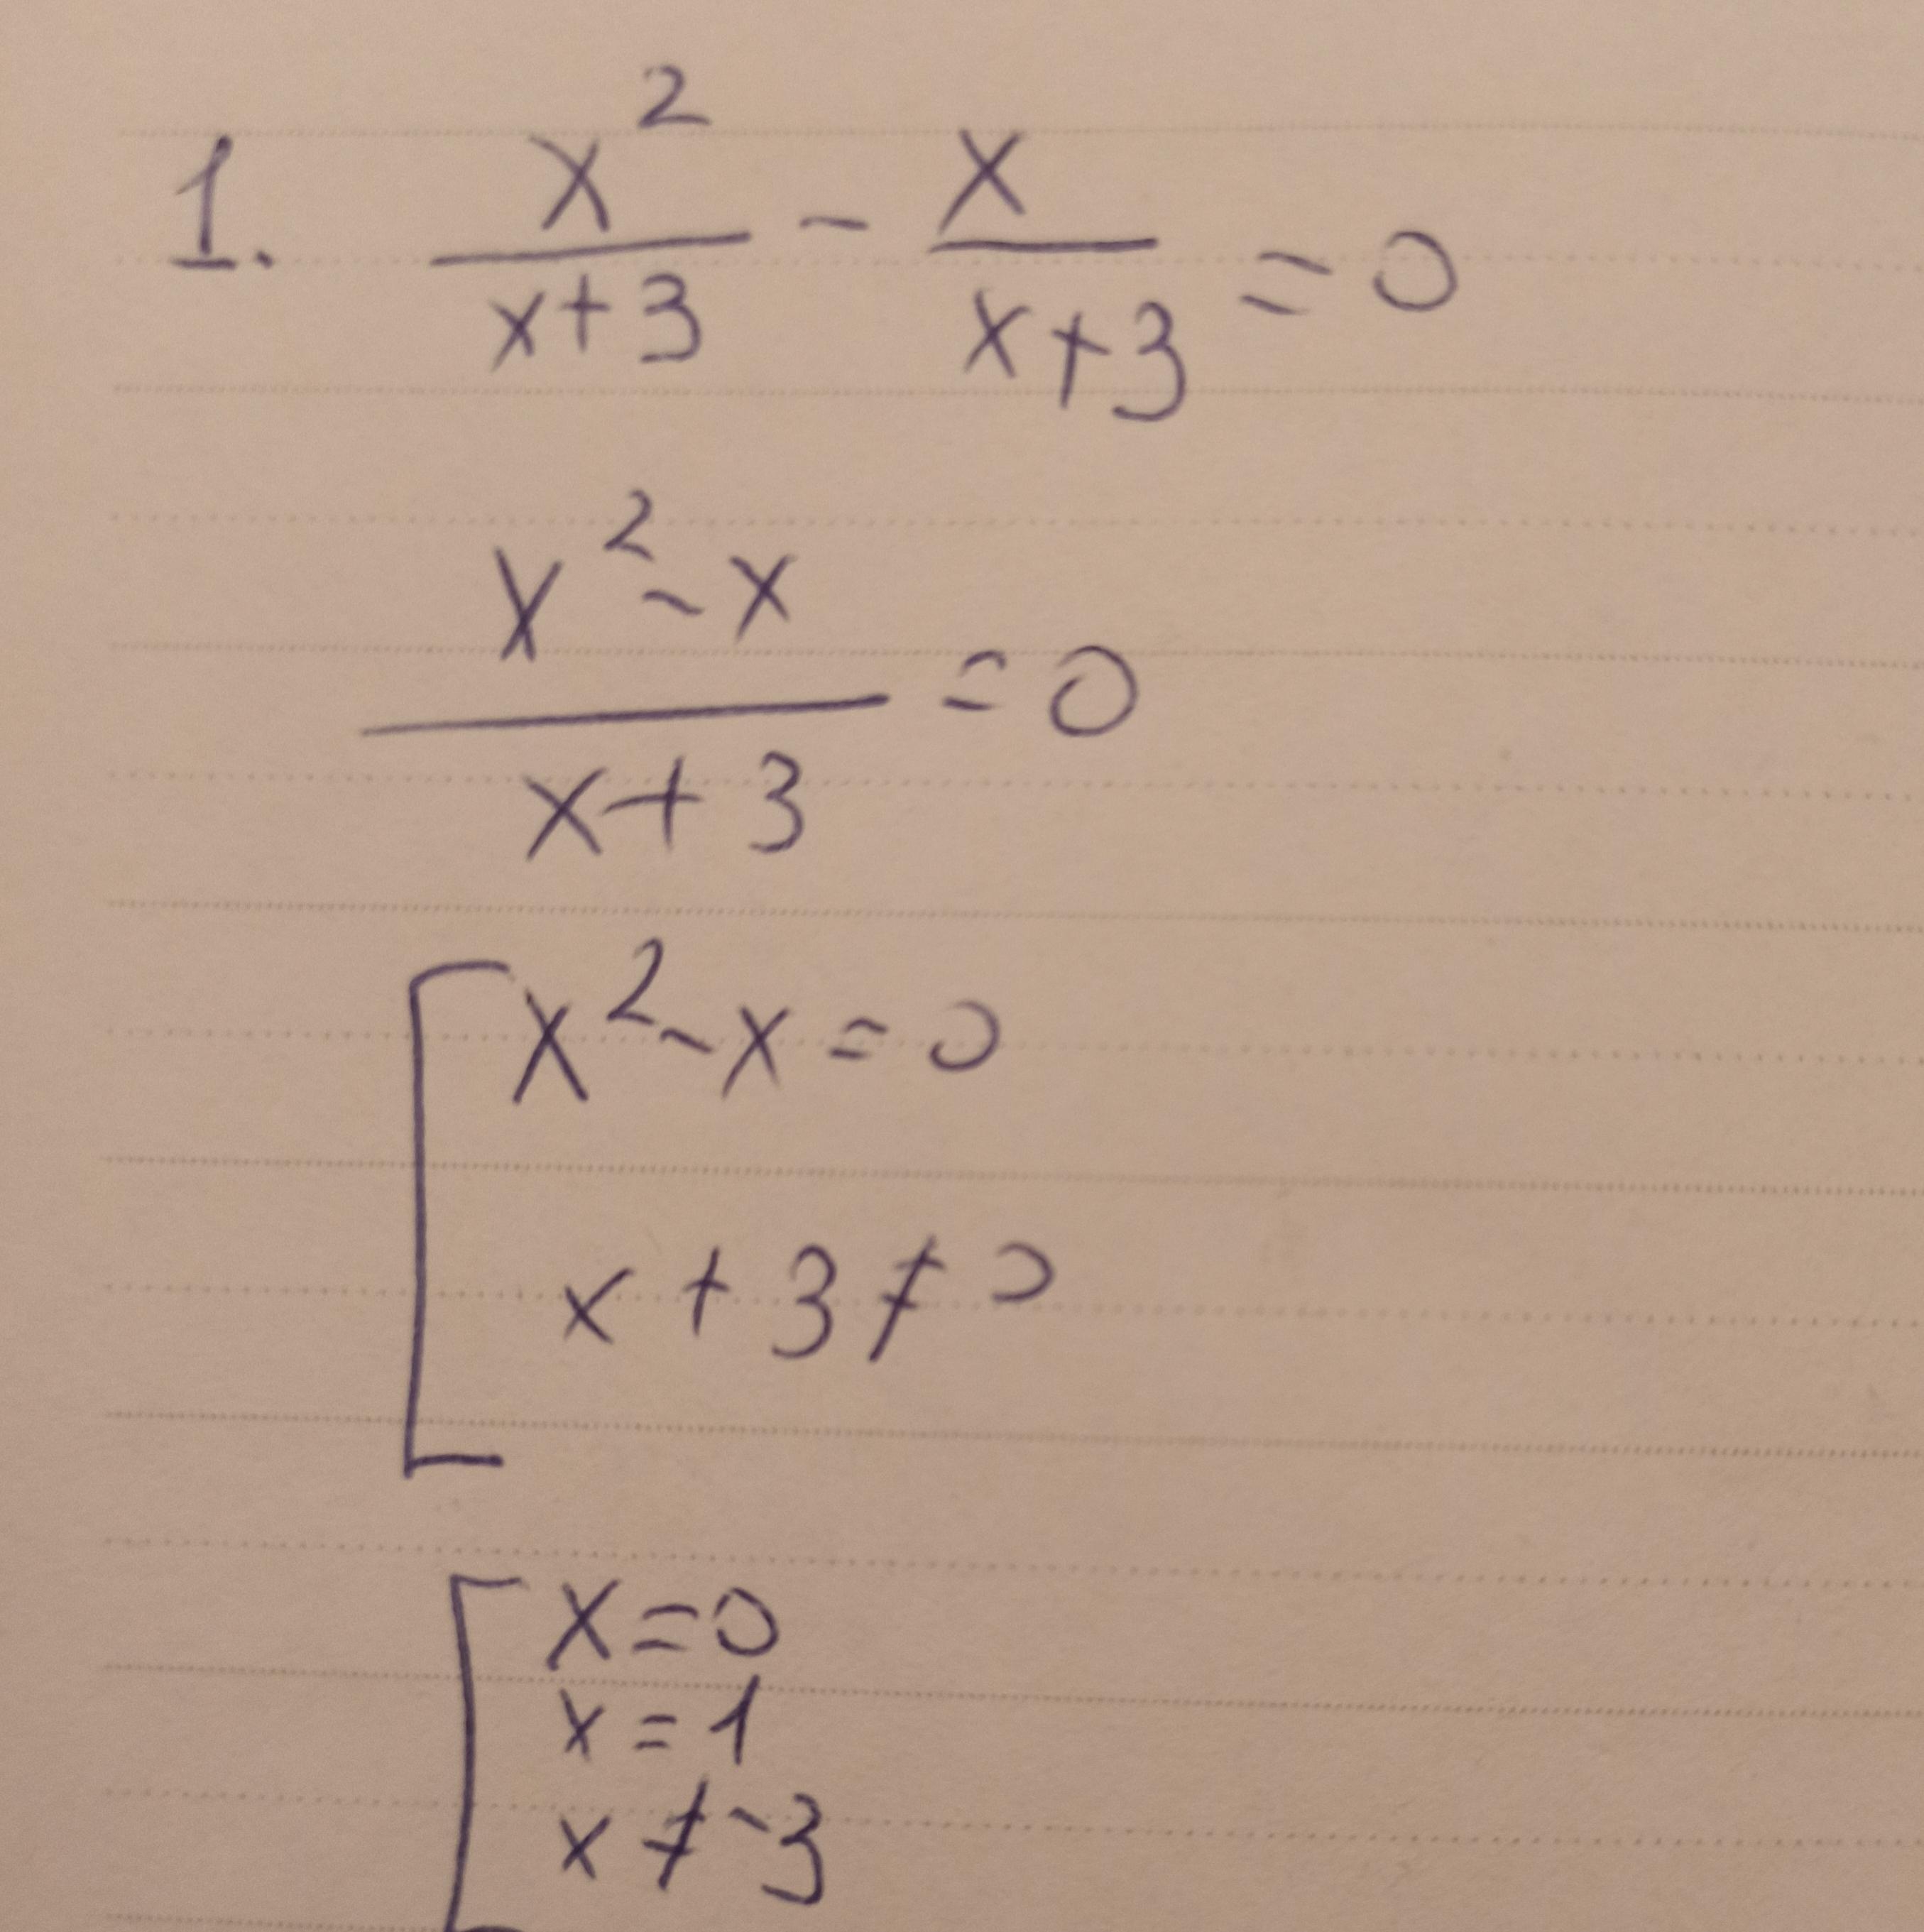 1. x²/(x+3) - x/(x+3) = 0
(x² - x)/(x+3) = 0
[ x² - x = 0
x + 3 ≠ 0
[ x = 0
x = 1
x ≠ -3